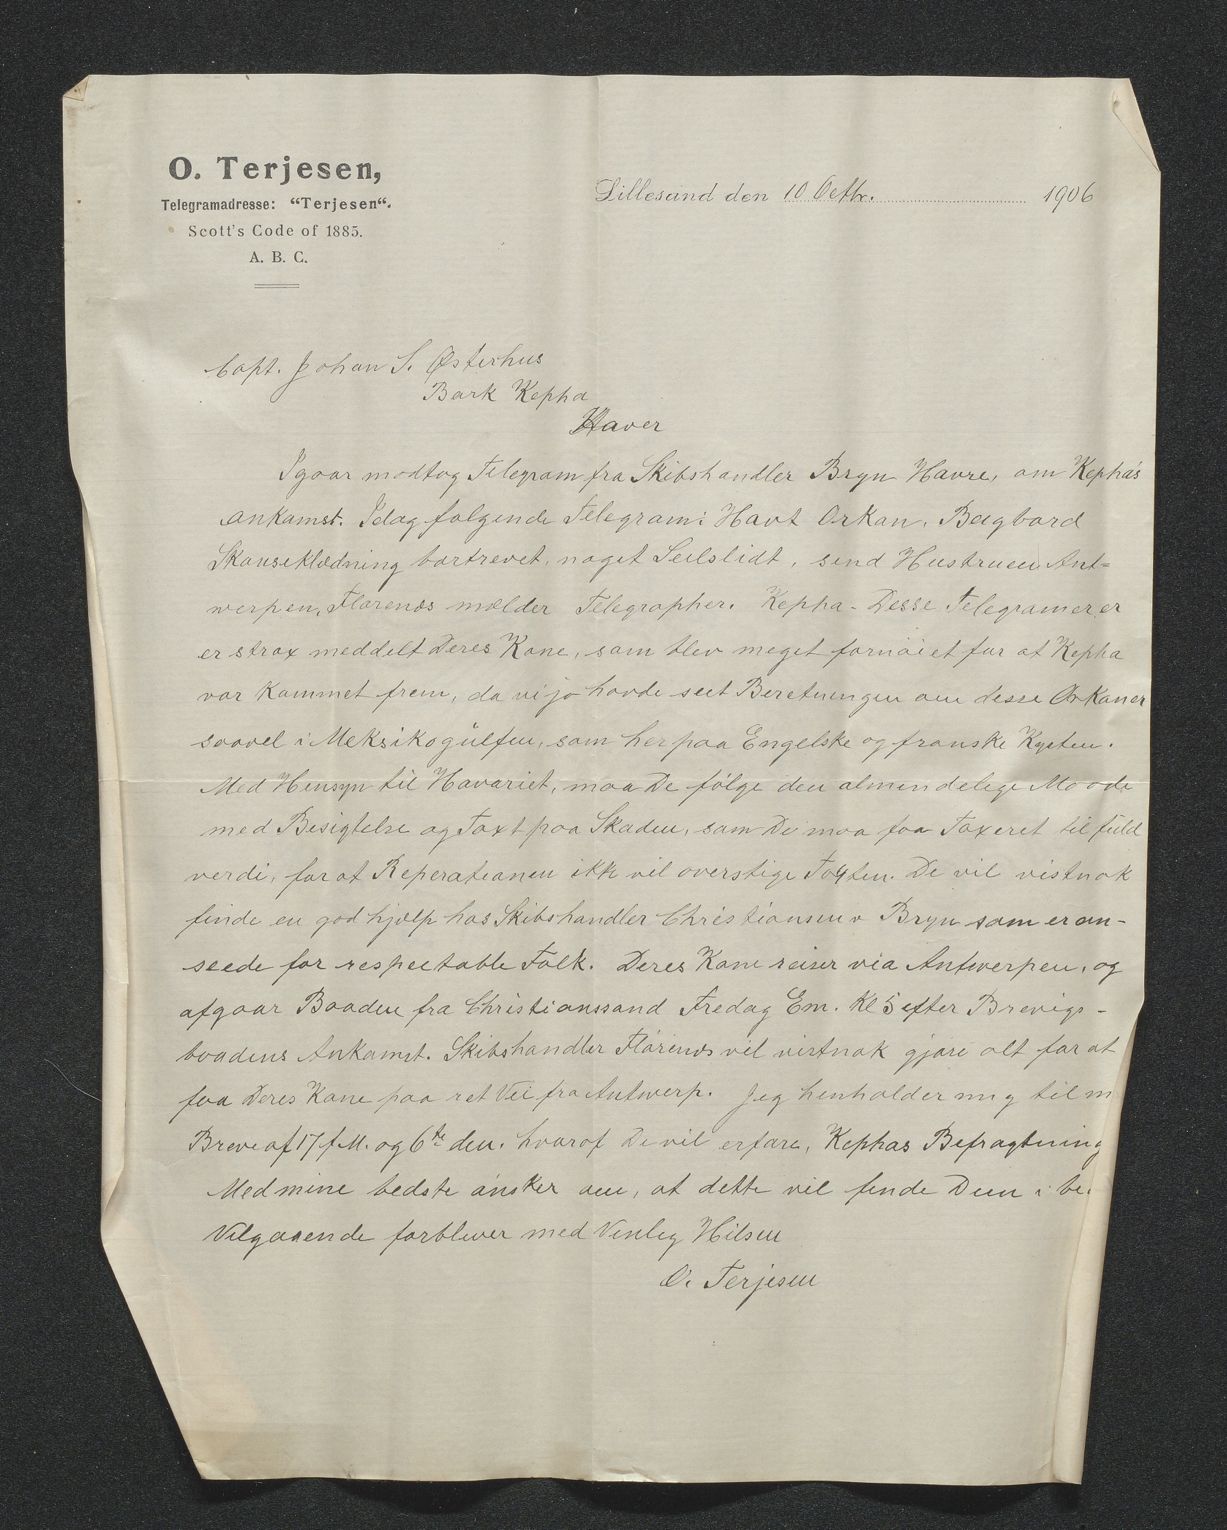 O. Terjesen,
Telegramadresse: "Terjesen".
Scott's Code of 1885.
A. B. C.
Lillesand den 10 Octbr. 1906
Capt. Johan S. Østerhus
Bark Kepha
Havre
Igaar modtog Telegram fra Skibshandler Bryn Havre, om Kepha's
Ankomst. Idag følgende Telegram: Havt Orkan, Bagbord
Skanseklædning bortrevet, noget Seilslidt, send Hustruen Ant=
werpen, Florends mælder Telegrapher. Kepha - Desse Telegramer er
er strax meddelt Deres Kone, som blev meget fornøiet for at Kepha
var kommet frem, da vi jo havde seet Beretningen om desse Orkaner
saavel i Meksikogulfen, som her paa Engelske og franske Kysten.
Med Hensyn til Havariet, maa De følge den almindelige Maade
med Besigtelse og Taxt paa Skaden, som De maa faa Taxeret til fuld
verdi, for at Reperationen ikk vil overstige Taxten. De vil vistnok
finde en god hjælp hos Skibshandler Christiansen & Bryn som er an-
seede for respectable Folk. Deres Kone reiser via Antwerpen, og
afgaar Baaden fra Christianssand Fredag Em. Kl 5 efter Brevigs-
baadens Ankomst. Skibshandler Florends vil vistnok gjøre alt for at
faa Deres Kone paa ret Vei fra Antwerp. Jeg henholder mig til m
Breve af 17 f.M. og 6te den. hvoraf De vil erfare, Kephas Befragtning
Med mine bedste ønsker om, at dette vil finde Dem i be
Velgaaende forbliver med Venlig Hilsen
O. Terjesen